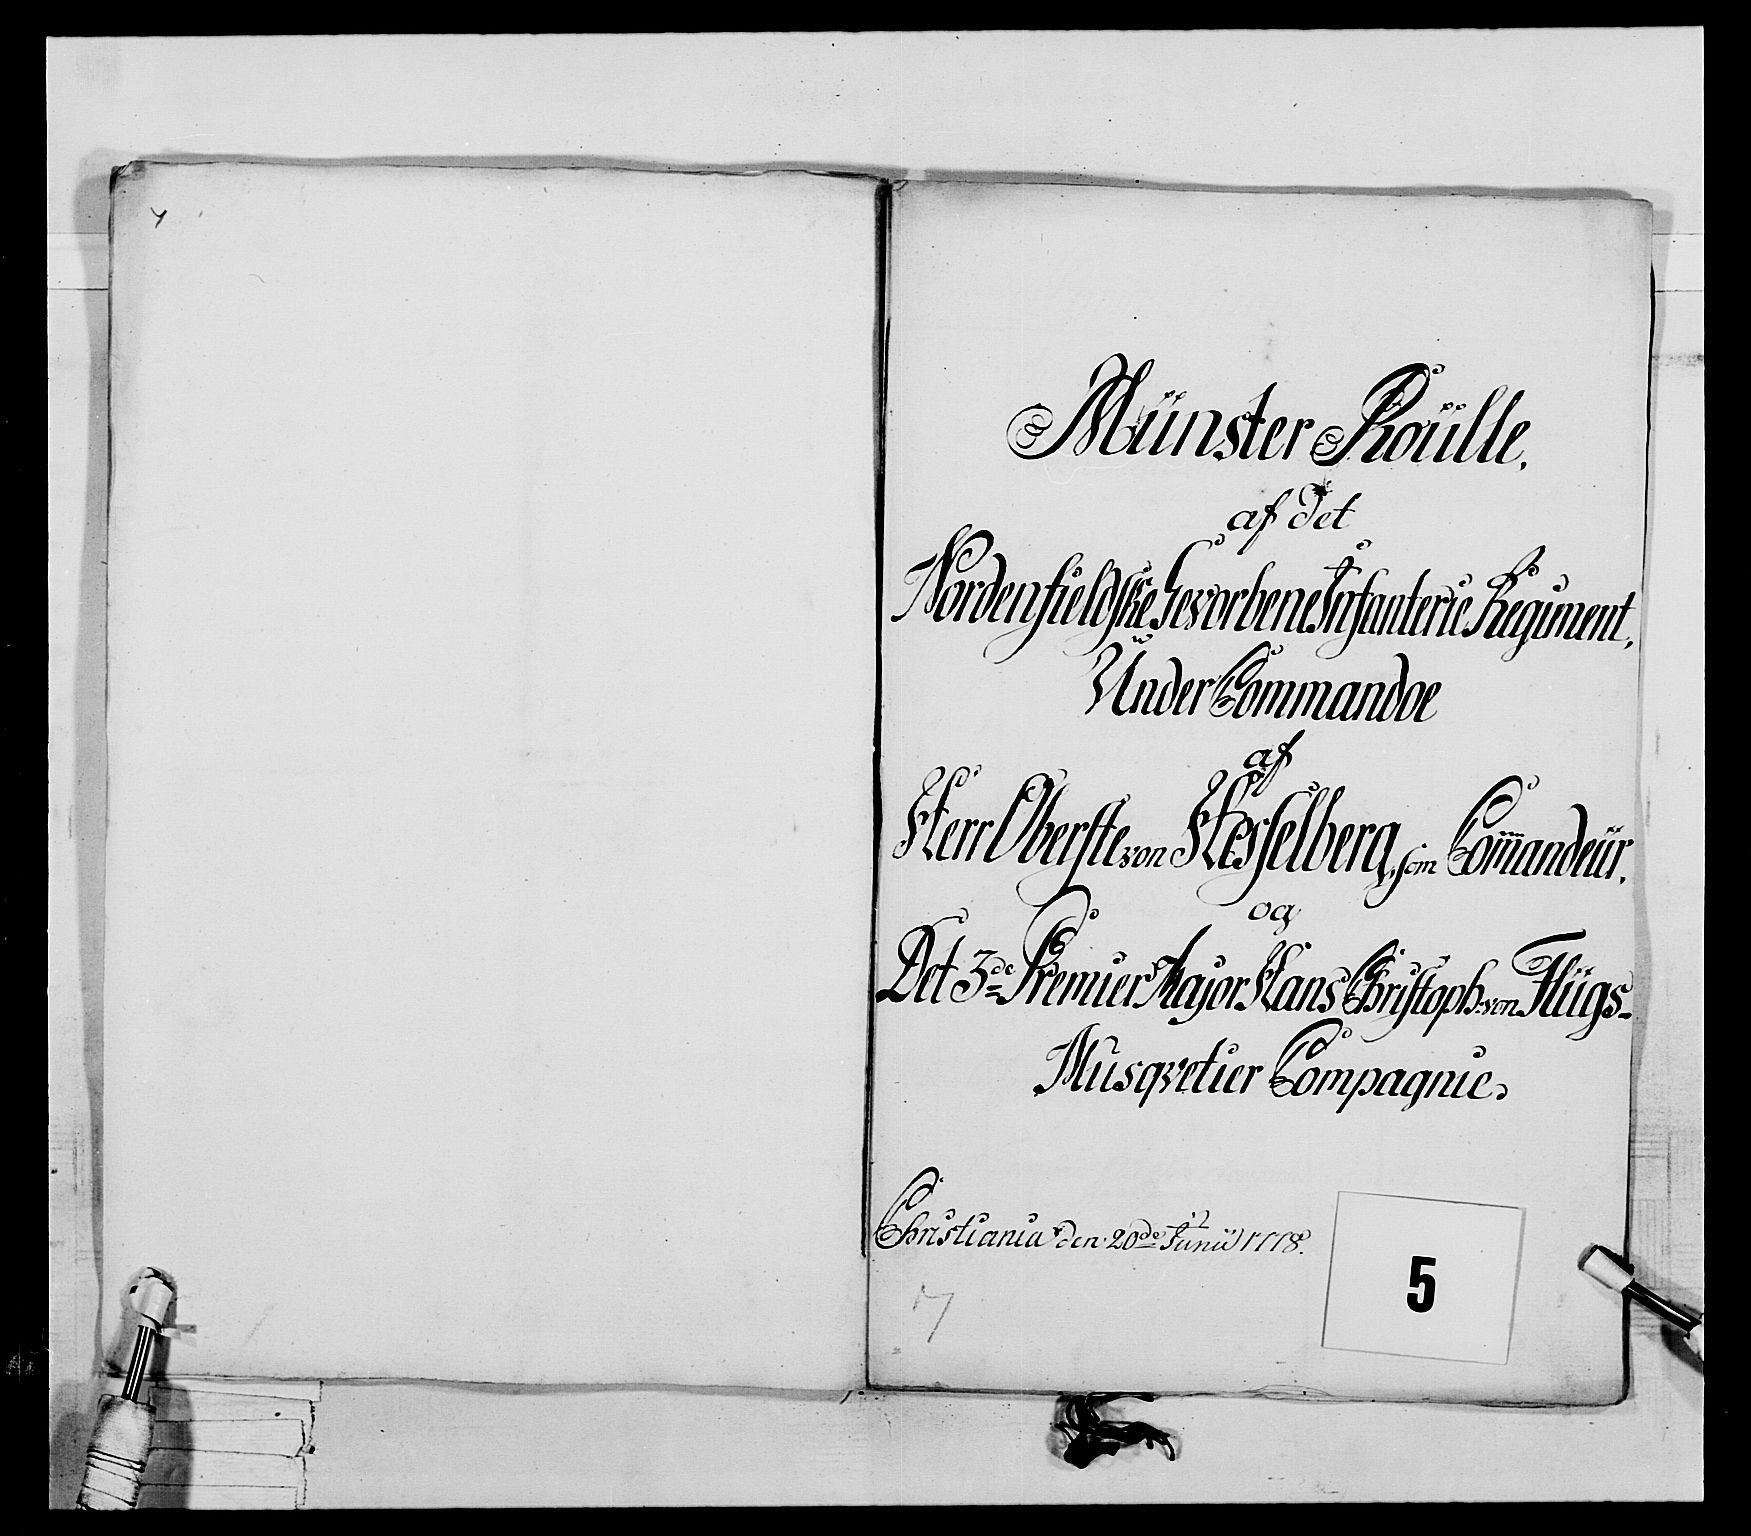 Münster Roülle.
af det
Nordenfieldske Gevorbene Infanterie Regiment.
Under Commandoe
af
Herr Oberste von Hesselberg, som Com̄andeür.
og
Det 3de Premier Major Hans Christoph von Flügs-
Musqvetier Compagnie.
Christiania den 20de Junii 1778.
5